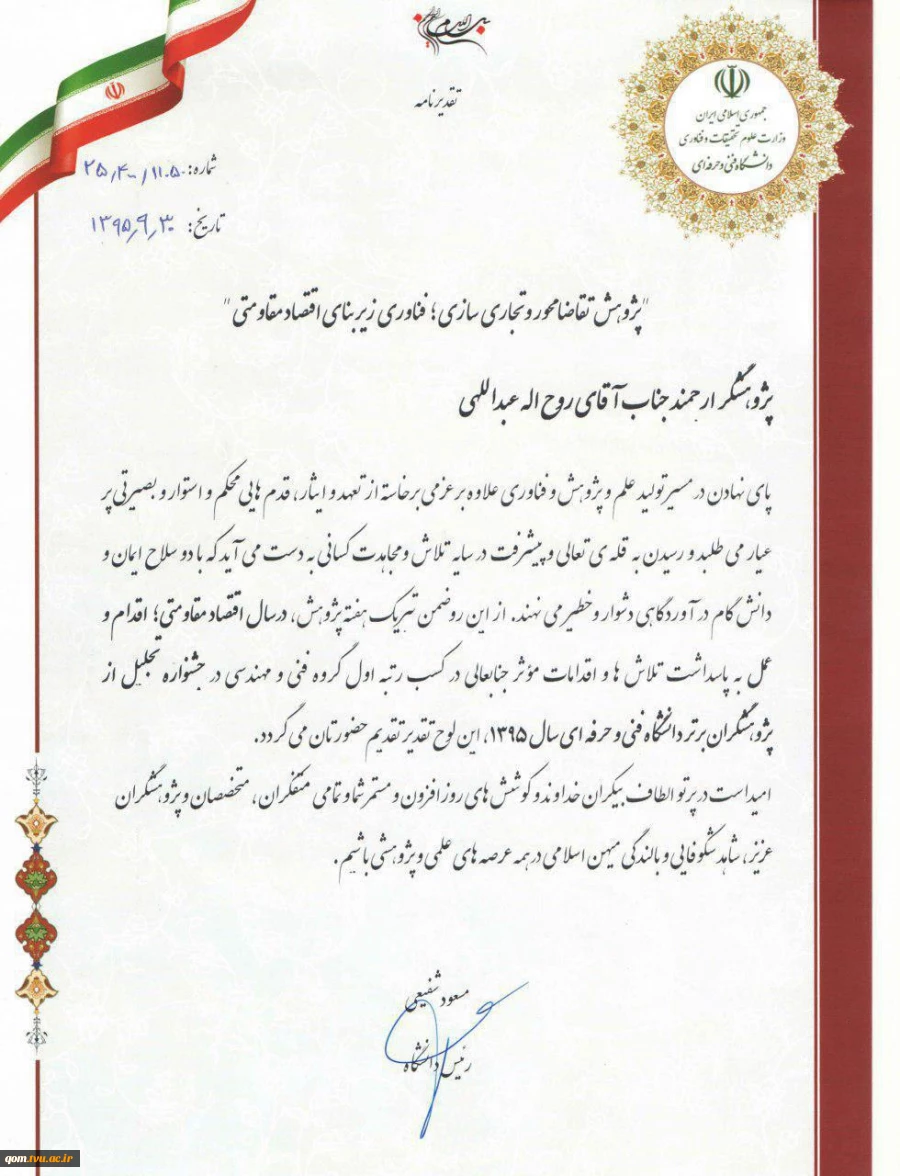 بسم الله الرحمن الرحیم
تقدیرنامه
جمهوری اسلامی ایران
وزارت علوم تحقیقات و فناوری
دانشگاه فنی و حرفه‌ای
شماره: ۲۵٫۴۰۰٫۱۱۰۵۰
تاریخ: ۱۳۹۵٫۹٫۳۰
"پژوهش تقاضامحور و تجاری سازی؛ فناوری زیربنای اقتصاد مقاومتی"
پژوهشگر ارجمند جناب آقای روح اله عبداللهی
پای نهادن در مسیر تولید علم و پژوهش و فناوری علاوه بر عزمی برخاسته از تعهد و ایثار، قدم هایی محکم و استوار و بصیرتی پر
عیار می طلبد و رسیدن به قله ی تعالی و پیشرفت در سایه تلاش و مجاهدت کسانی به دست می آید که با دو سلاح ایمان و
دانش گام در آوردگاهی دشوار و خطیر می نهند. از این رو ضمن تبریک هفته پژوهش، در سال اقتصاد مقاومتی؛ اقدام و
عمل به پاسداشت تلاش ها و اقدامات مؤثر جنابعالی در کسب رتبه اول گروه فنی و مهندسی در جشنواره تجلیل از
پژوهشگران برتر دانشگاه فنی و حرفه ای سال ۱۳۹۵، این لوح تقدیر تقدیم حضورتان می گردد.
امید است در پرتو الطاف بیکران خداوند و کوشش های روزافزون و مستمر شما و تمامی متفکران، متخصصان و پژوهشگران
عزیز، شاهد شکوفایی و بالندگی میهن اسلامی در همه عرصه های علمی و پژوهشی باشیم.
مسعود شفیعی
رئیس دانشگاه
qom.tvu.ac.ir